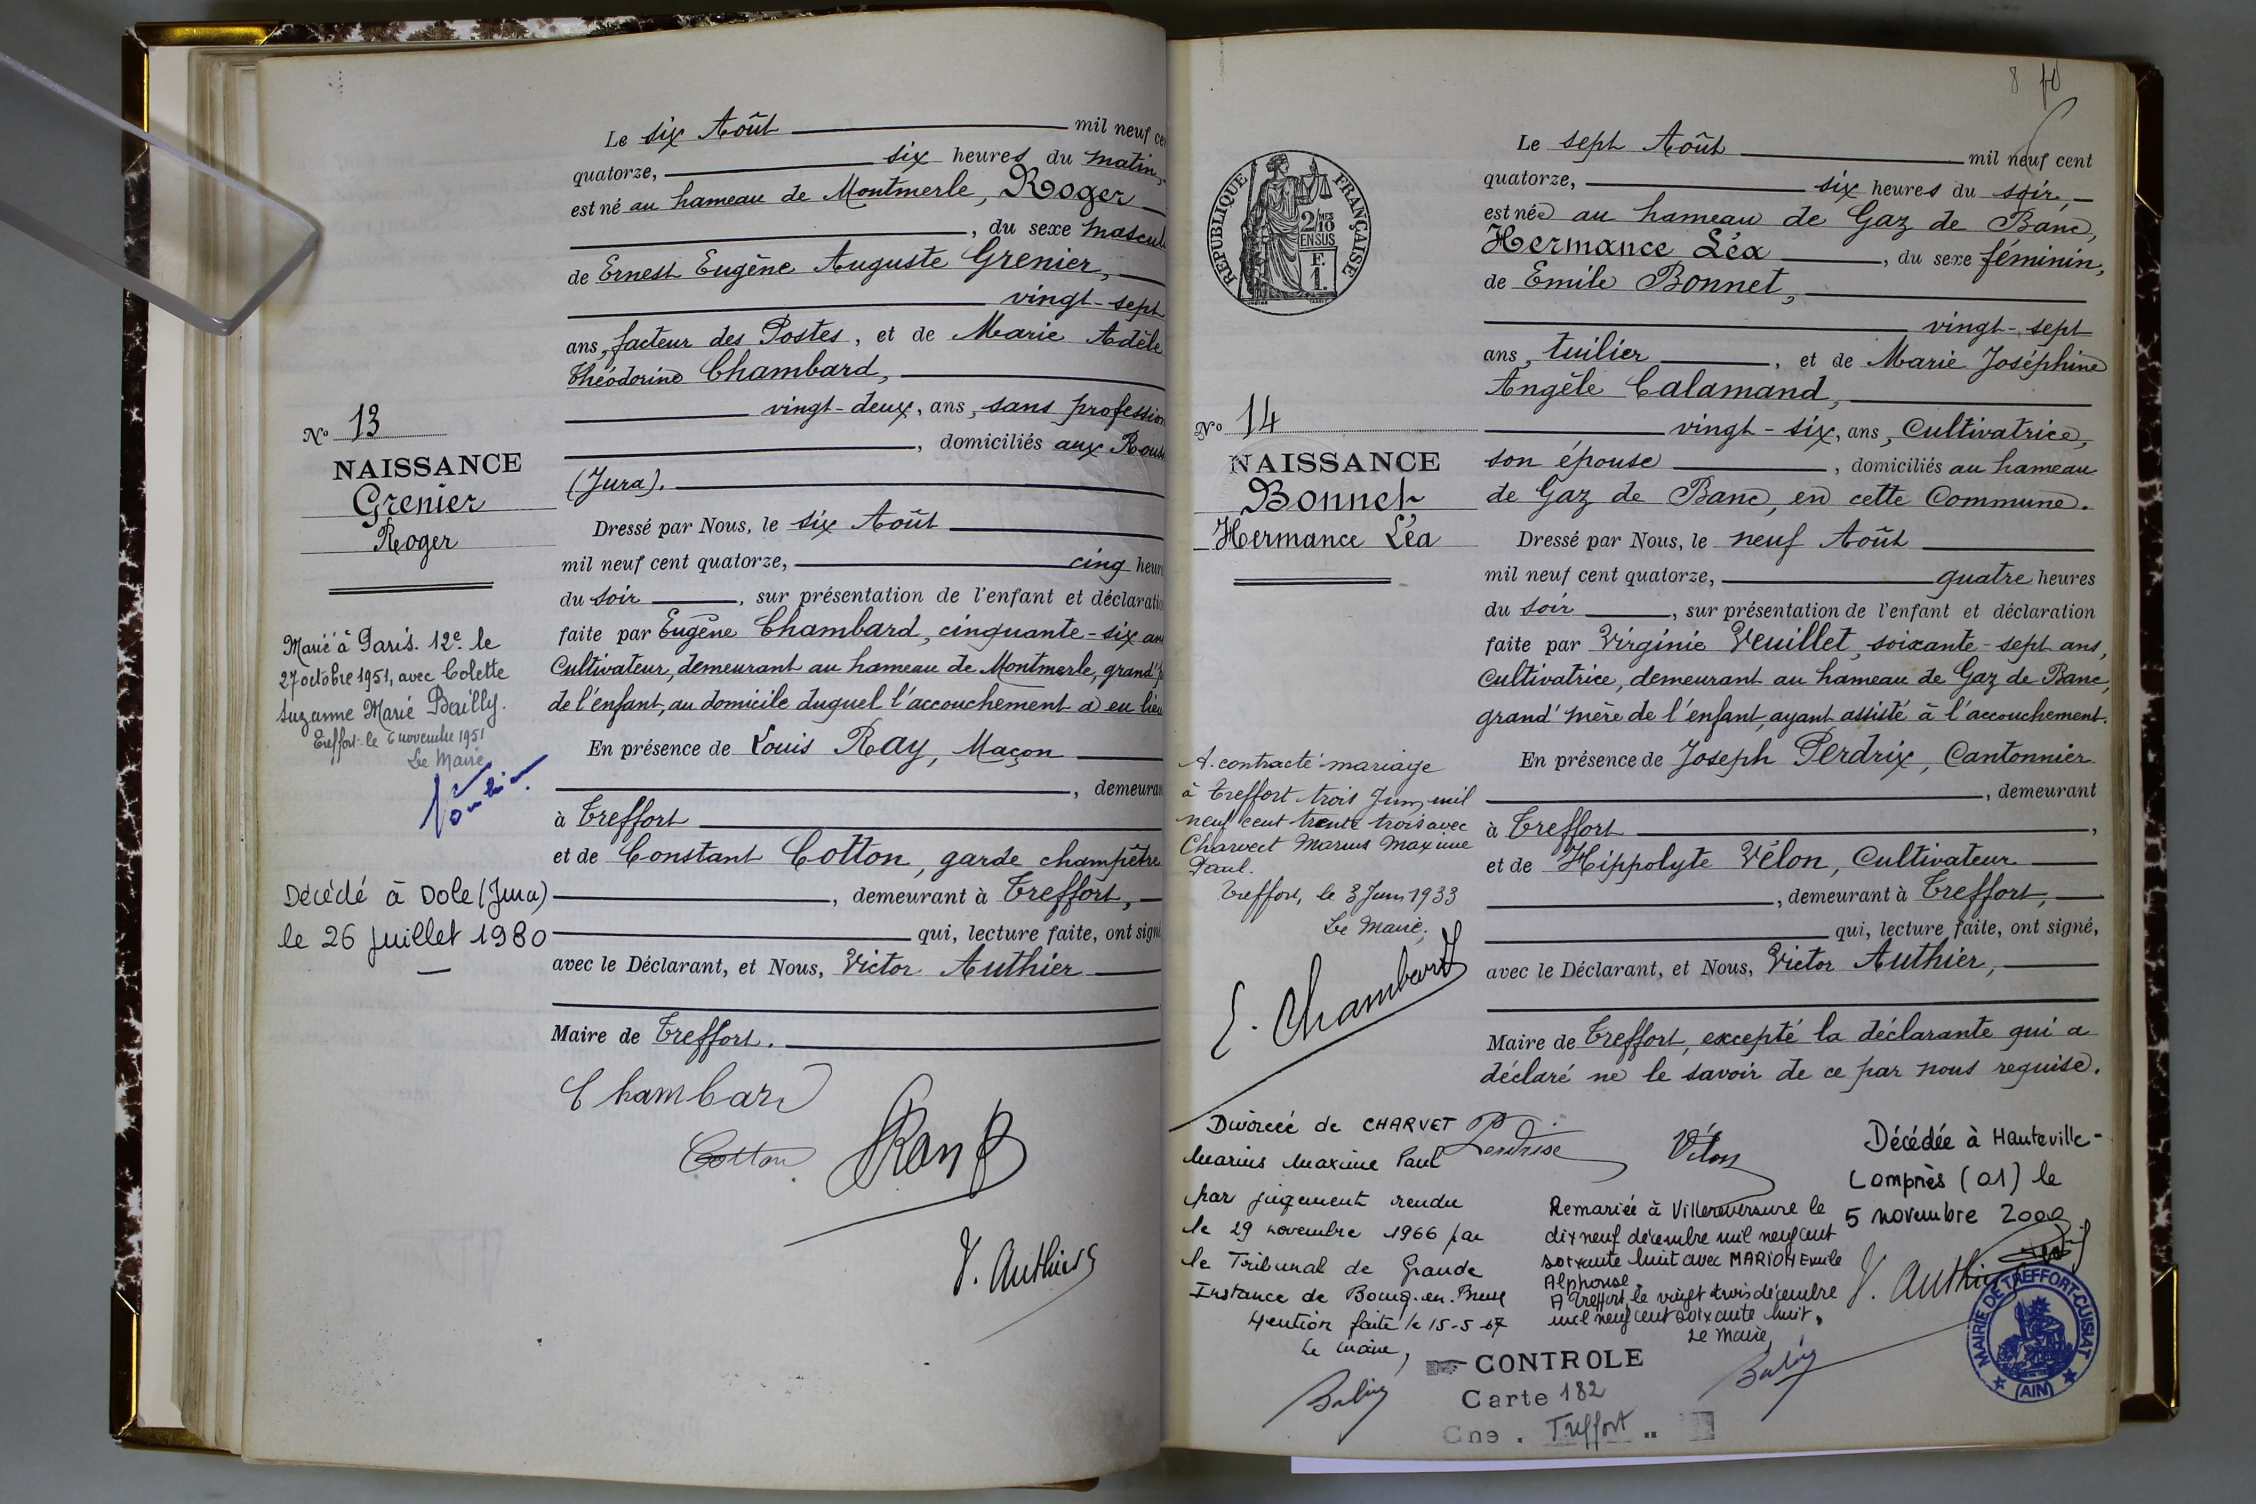 Le six Août mil neuf ce
quatorze, six heures du matin,
est né au hameau de Montmerle, Roger
, du sexe mascul
de Ernest Eugène Auguste Grenier,
vingt-sept
ans, facteur des Postes, et de Marie Adèle
Théodorine Chambard,
vingt-deux, ans, sans profession
, domiciliés aux
(Jura).
Dressé par Nous, le six Août
mil neuf cent quatorze, cinq heur
du soir, sur présentation de l'enfant et déclaratio
faite par Eugène Chambard, cinquante-six an
Cultivateur, demeurant au hameau de Montmerle, grand'p
de l'enfant, au domicile duquel l'accouchement a eu lieu
En présence de Louis Ray, Maçon
, demeuran
à Treffort
et de Constant Cotton, garde champêtre
, demeurant à Treffort,
qui, lecture faite, ont signé
avec le Déclarant, et Nous, Victor Authier
Maire de Treffort.
Chambard
Cotton
V. Authier
No 13
NAISSANCE
Grenier
Roger
Marié à Paris. 12e. le
27 octobre 1951, avec Colette
Suzanne Marie Bailly.
Treffort le 6 novembre 1951
Le Maire
Décédé à Dole (Jura)
le 26 juillet 1980
8 10
Le sept Août mil neuf cent
quatorze, six heures du soir,
est née au hameau de Gaz de Banc,
Hermance Léa, du sexe féminin,
de Emile Bonnet,
vingt-sept
ans, tuilier, et de Marie Joséphine
Angèle Calamand,
vingt-six, ans, Cultivatrice,
son épouse, domiciliés au hameau
de Gaz de Banc, en cette Commune.
Dressé par Nous, le neuf Août
mil neuf cent quatorze, quatre heures
du soir, sur présentation de l'enfant et déclaration
faite par Virginie Veuillet, soixante-sept ans,
Cultivatrice, demeurant au hameau de Gaz de Banc,
grand'mère de l'enfant, ayant assisté à l'accouchement.
En présence de Joseph Perdrix, Cantonnier
, demeurant
à Treffort,
et de Hippolyte Vélon, Cultivateur
, demeurant à Treffort,
qui, lecture faite, ont signé,
avec le Déclarant, et Nous, Victor Authier,
Maire de Treffort, excepté la déclarante qui a
déclaré ne le savoir de ce par nous requise.
RÉPUBLIQUE FRANÇAISE
2/10 MES
EN SUS
F.
1.
No 14
NAISSANCE
Bonnet
Hermance Léa
A contracté mariage
à Treffort trois Juin mil
neuf cent trente trois avec
Charvet Marius Maxime
Paul.
Treffort, le 3 Juin 1933
Le Maire,
E. Chambard
Divorcée de CHARVET
Marius Maxime Paul
par jugement rendu
le 29 novembre 1966 par
le Tribunal de Grande
Instance de Bourg-en-Bresse
Mention faite le 15-5-67
Le Maire,
Perdrix
Vélon
Remariée à Villereversure le
dix neuf décembre mil neuf cent
soixante huit avec MARION Emile
Alphonse.
A Treffort, le vingt trois décembre
mil neuf cent soixante huit.
Le Maire,
Décédée à Hauteville-
Lompnès (01) le
5 novembre 2000
V. Authier
MAIRIE DE TREFFORT-CUISIAT
(AIN)
CONTROLE
Carte 182
Cne. Treffort